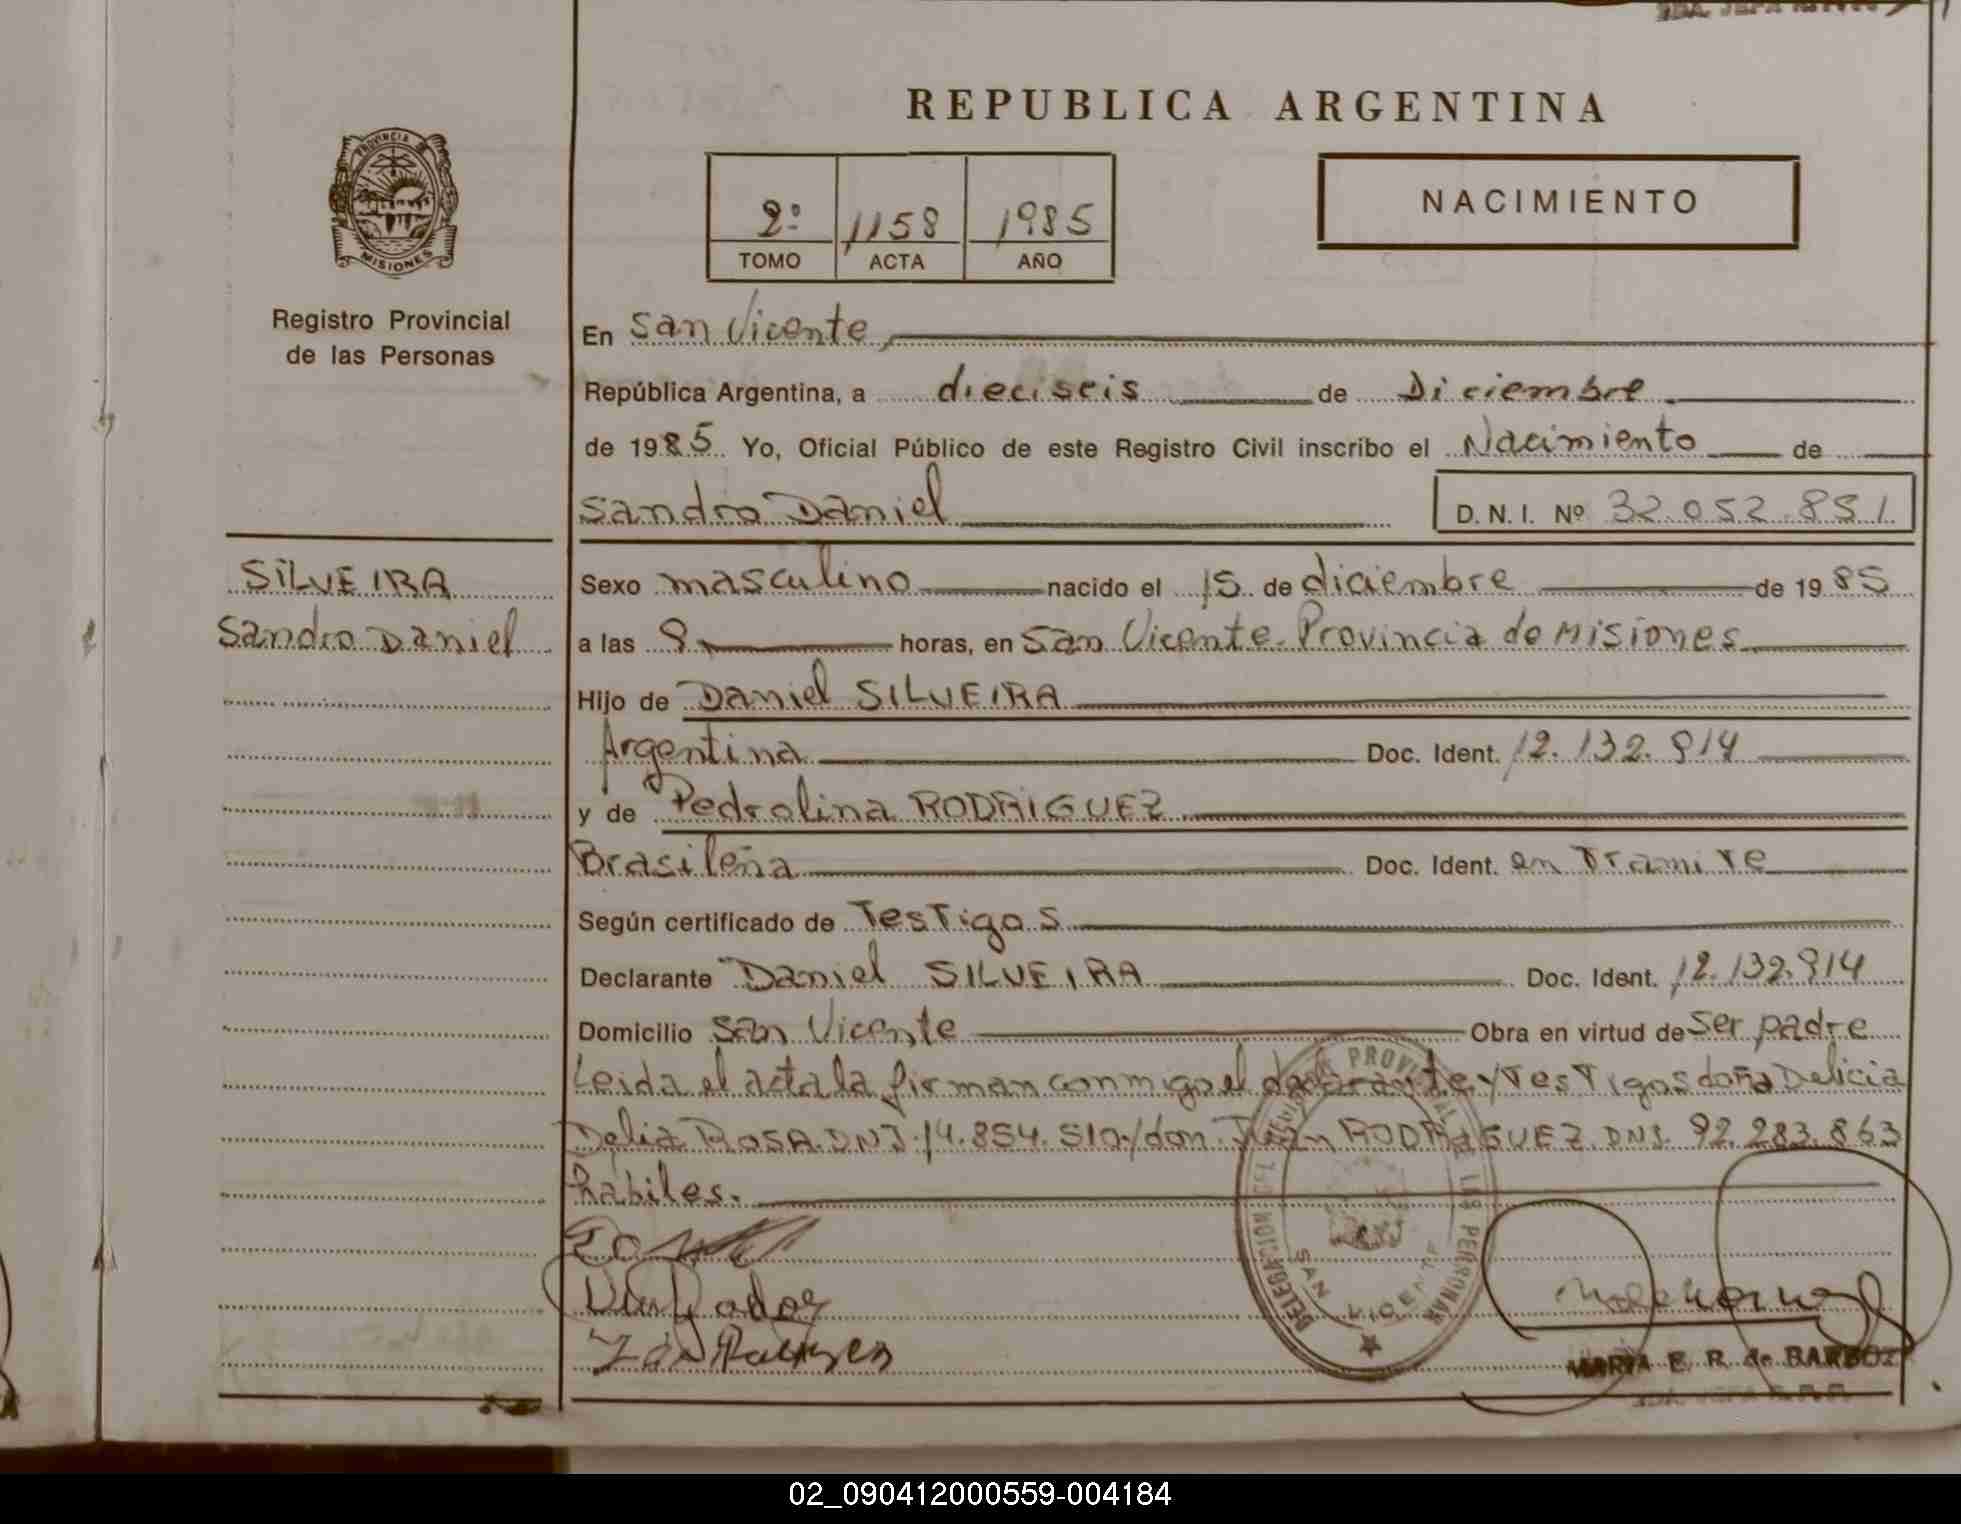 REPUBLICA ARGENTINA
PROVINCIA DE
MISIONES
Registro Provincial
de las Personas
2º 1158 1985
TOMO ACTA AÑO
NACIMIENTO
En San Vicente,
República Argentina, a dieciseis de Diciembre
de 1985 Yo, Oficial Público de este Registro Civil inscribo el Nacimiento de
Sandro Daniel D. N. I. Nº 32.052.851
SILVEIRA
Sandro Daniel
Sexo masculino nacido el 15 de diciembre de 1985
a las 9 horas, en San Vicente Provincia de Misiones
Hijo de Daniel SILVEIRA
Argentina Doc. Ident. 12.132.914
y de Pedrolina RODRIGUEZ
Brasileña Doc. Ident. en Tramite
Según certificado de Testigos
Declarante Daniel SILVEIRA Doc. Ident. 12.132.914
Domicilio San Vicente Obra en virtud de Ser padre
Leida el acta la firman conmigo el declarante y Testigos doña Delicia
Delia ROSA DNI 14.854.510 y don Juan RODRIGUEZ DNI. 92.283.863
habiles.
DELEGACION DEL REGISTRO PROVINCIAL DE LAS PERSONAS
SAN VICENTE
MARIA E. R. de BARBOZA
02_090412000559-004184